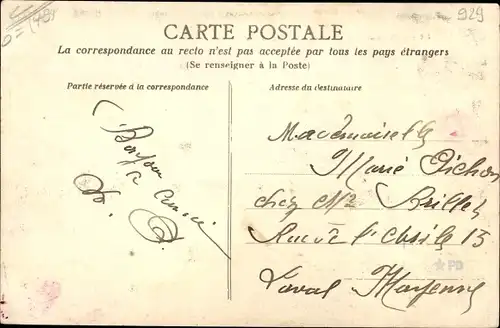 929
CARTE POSTALE
La correspondance au recto n'est pas acceptée par tous les pays étrangers
(Se renseigner à la Poste)
Partie réservée à la correspondance
Adresse du destinataire
Bonjour
Mademoiselle
Marie Pichon
chez Mr Brillet
Rue de l'Asile 15
Laval Mayenne
PD